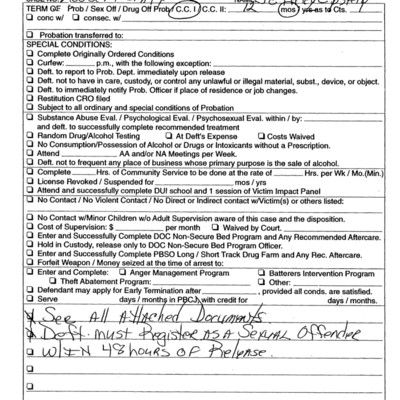 TERM OF Prob / Sex Off / Drug Off Prob / C.C. I / C.C. II: 12 mos / yrs as to Cts.
☐ conc w/ ☐ consec. w/
☐ Probation transferred to:
SPECIAL CONDITIONS:
☐ Complete Originally Ordered Conditions
☐ Curfew: p.m., with the following exception:
☐ Deft. to report to Prob. Dept. immediately upon release
☐ Deft. not to have in care, custody, or control any unlawful or illegal material, subst., device, or object.
☐ Deft. to immediately notify Prob. Officer if place of residence or job changes.
☐ Restitution CRO filed
☐ Subject to all ordinary and special conditions of Probation
☐ Substance Abuse Eval. / Psychological Eval. / Psychosexual Eval. within / by:
and deft. to successfully complete recommended treatment
☐ Random Drug/Alcohol Testing ☐ At Deft's Expense ☐ Costs Waived
☐ No Consumption/Possession of Alcohol or Drugs or Intoxicants without a Prescription.
☐ Attend AA and/or NA Meetings per Week.
☐ Deft. not to frequent any place of business whose primary purpose is the sale of alcohol.
☐ Complete Hrs. of Community Service to be done at the rate of Hrs. per Wk / Mo.(Min.)
☐ License Revoked / Suspended for mos / yrs
☐ Attend and successfully complete DUI school and 1 session of Victim Impact Panel
☐ No Contact / No Violent Contact / No Direct or Indirect contact w/Victim(s) or others listed:
☐ No Contact w/Minor Children w/o Adult Supervision aware of this case and the disposition.
☐ Cost of Supervision: $ per month ☐ Waived by Court.
☐ Enter and Successfully Complete DOC Non-Secure Bed Program and Any Recommended Aftercare.
☐ Hold in Custody, release only to DOC Non-Secure Bed Program Officer.
☐ Enter and Successfully Complete PBSO Long / Short Track Drug Farm and Any Rec. Aftercare.
☐ Forfeit Weapon / Money seized at the time of arrest to:
☐ Enter and Complete: ☐ Anger Management Program ☐ Batterers Intervention Program
☐ Theft Abatement Program: ☐ Other:
☐ Defendant may apply for Early Termination after , provided all conds. are satisfied.
☐ Serve days / months in PBCJ, with credit for days / months.
See All Attached Documents
Deft. must Register AS A Sexual Offender
☐ W/IN 48 hours OF Release.
☐
☐